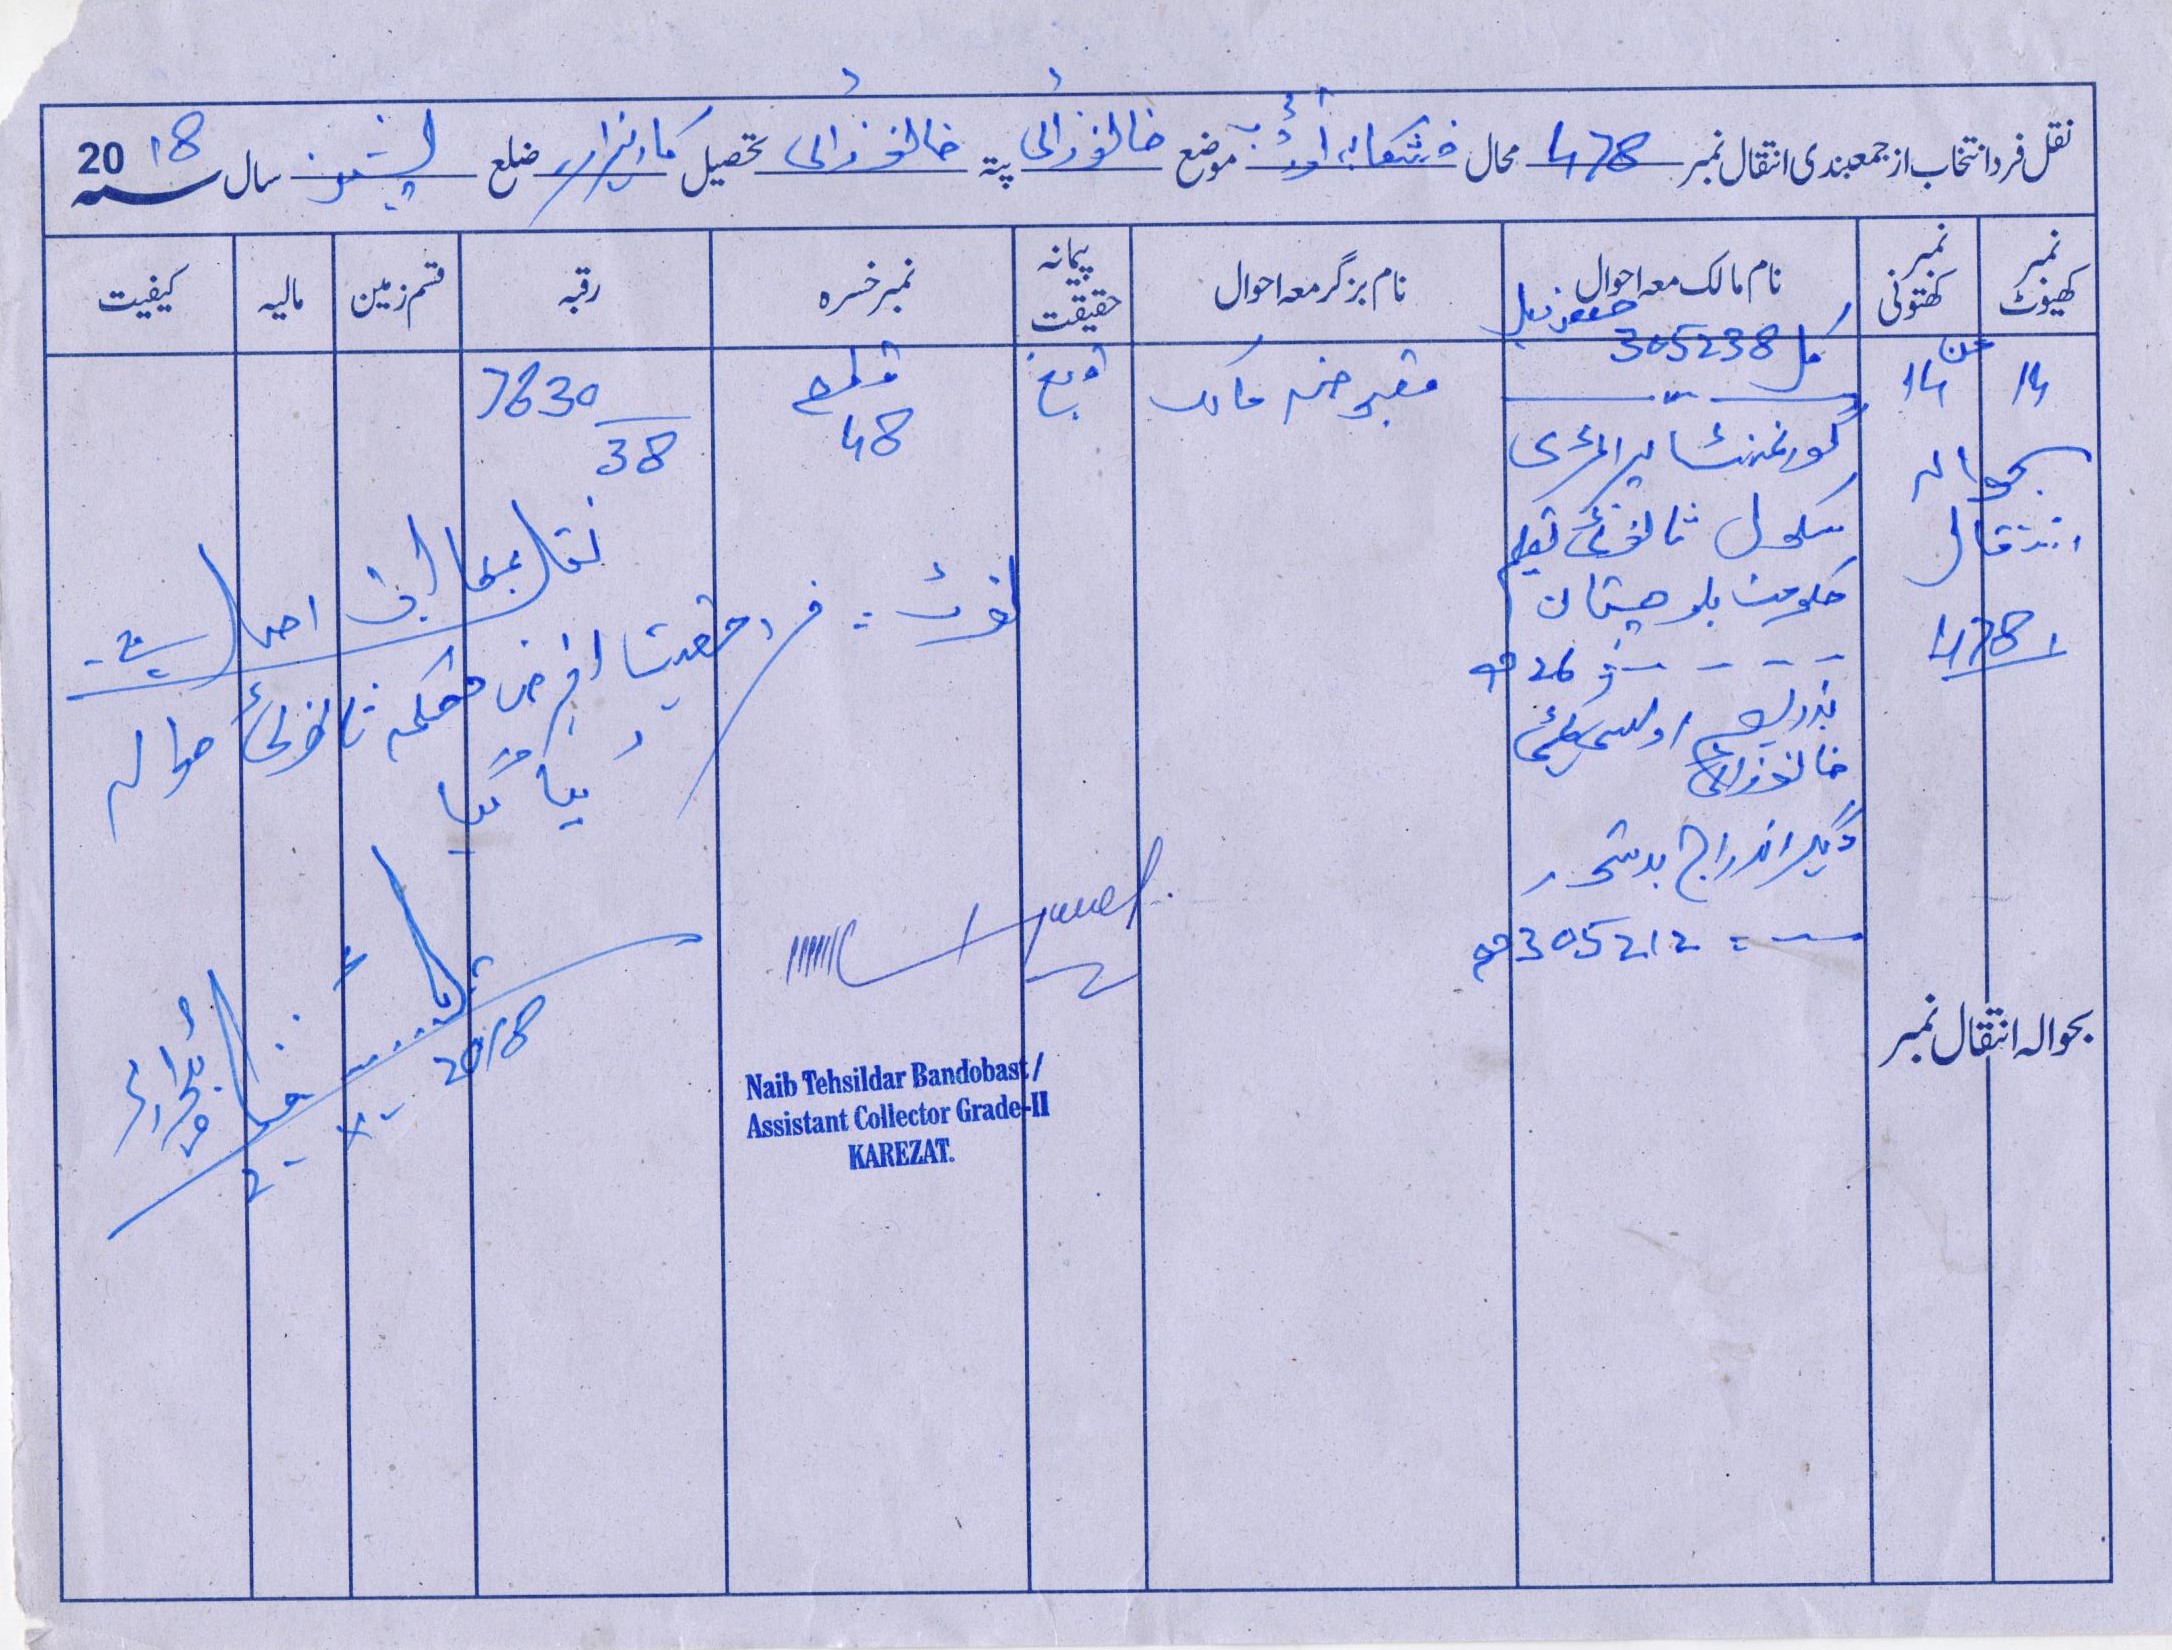 نقل فرد انتخاب از جمعبندی انتقال نمبر 478 محال خشکابہ موضع خانوزئی پتہ خانوزئی تحصیل کاریزات ضلع پشین سال 2018
نمبر کھیوٹ
نمبر کھتونی
نام مالک معہ احوال
نام بزگر معہ احوال
پیمانہ حقیقت
نمبر خسرہ
رقبہ
قسم زمین
مالیہ
کیفیت
14
14
کل 305238
گورنمنٹ پرائمری
سکول ثانوی تعلیم
حکومت بلوچستان
26
بذریعہ
خانوزئی
دیگر اندراج بدستور
305212
مقبوضہ مالک
قطعہ
48
7630
38
بحوالہ
انتقال
478
نقل بمطابق اصل ہے
نوٹ: فرد حقیقت محکمہ ثانوی حوالہ
کیا گیا
2018
بحوالہ انتقال نمبر
Naib Tehsildar Bandobast /
Assistant Collector Grade-II
KAREZAT.